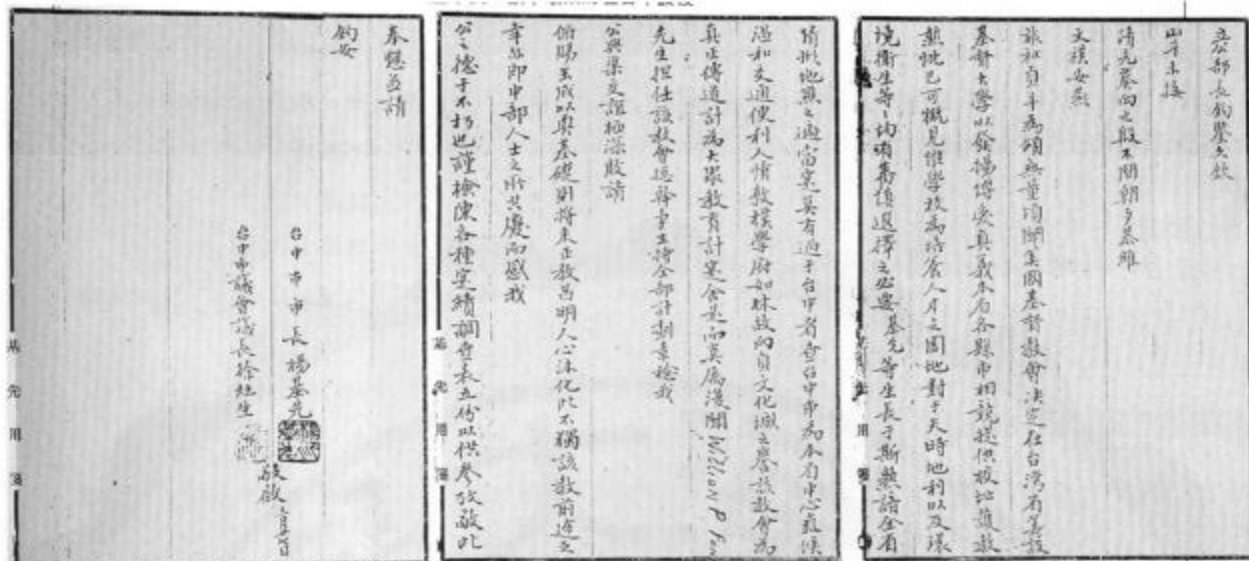 立公部長鈞鑒久欽
山斗未接
清光馨向之殷不間朝夕恭維
文祺安燕
旅祉貞為頌無量頃聞美國基督教會決定在台灣省籌設
基督大學以發揚博愛真義本省各縣市相競提供校地
熱忱已可概見惟學校為培養人才之園地對于天時地利以及環
境衛生等々均須審慎選擇之必要基先等生長于斯熟諳全省
用箋
情形地點之適當寔莫有過于台中者查台中市為本省中心氣候
溫和交通便利人情敦樸學府如林故向負文化城之譽該教會為
真正傳道計為大眾教育計寔舍是而莫屬漫聞William P Fenn
先生担任該教會總幹事主持全部計劃素稔我
公與渠交誼極深敢請
俯賜玉成以奠基礎則將來正教昌明人心沐化此不獨該教前途之
幸亦即中部人士之所共慶而感我
公之德于不朽也謹檢陳各種寔績調查表五份以供參攷敬此
基先用箋
奉懇並請
鈞安
台中市市長楊基先
台中市議會議長徐灶生
敬啟
基先用箋